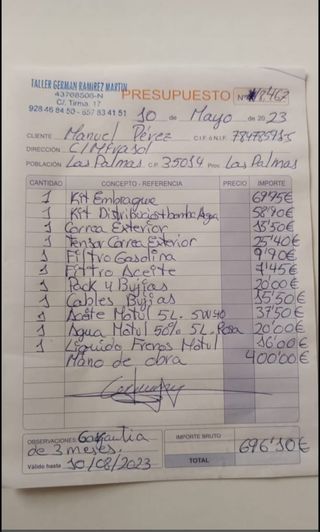 TALLER GERMAN RAMIREZ MARTIN
43768506-N
C/. Tirma, 17
928 46 84 50 - 657 83 41 51
PRESUPUESTO Nº 8.467
10 de Mayo de 2023
CLIENTE Manuel Pérez C.I.F. ó N.I.F.
DIRECCIÓN C/Mirasol
POBLACIÓN Las Palmas C.P. 35014 Prov. Las Palmas
CANTIDAD CONCEPTO - REFERENCIA PRECIO IMPORTE
1 Kit Embrague 69'75€
1 Kit Distribucion+bomba Agua 58'90€
1 Correa Exterior 15'50€
1 Tensor Correa Exterior 25'40€
1 Filtro Gasolina 9'90€
1 Filtro Aceite 7'45€
1 Pack 4 Bujias 20'00€
1 Cables Bujias 15'50€
1 Aceite Motul 5L. 5W40 37'50€
1 Agua Motul 50% 5L. Rosa 20'00€
1 Liquido Frenos Motul 16'00€
Mano de obra 400'00€
OBSERVACIONES Garantia
de 3 meses.
Válido hasta 10/08/2023
IMPORTE BRUTO
TOTAL 696'10€